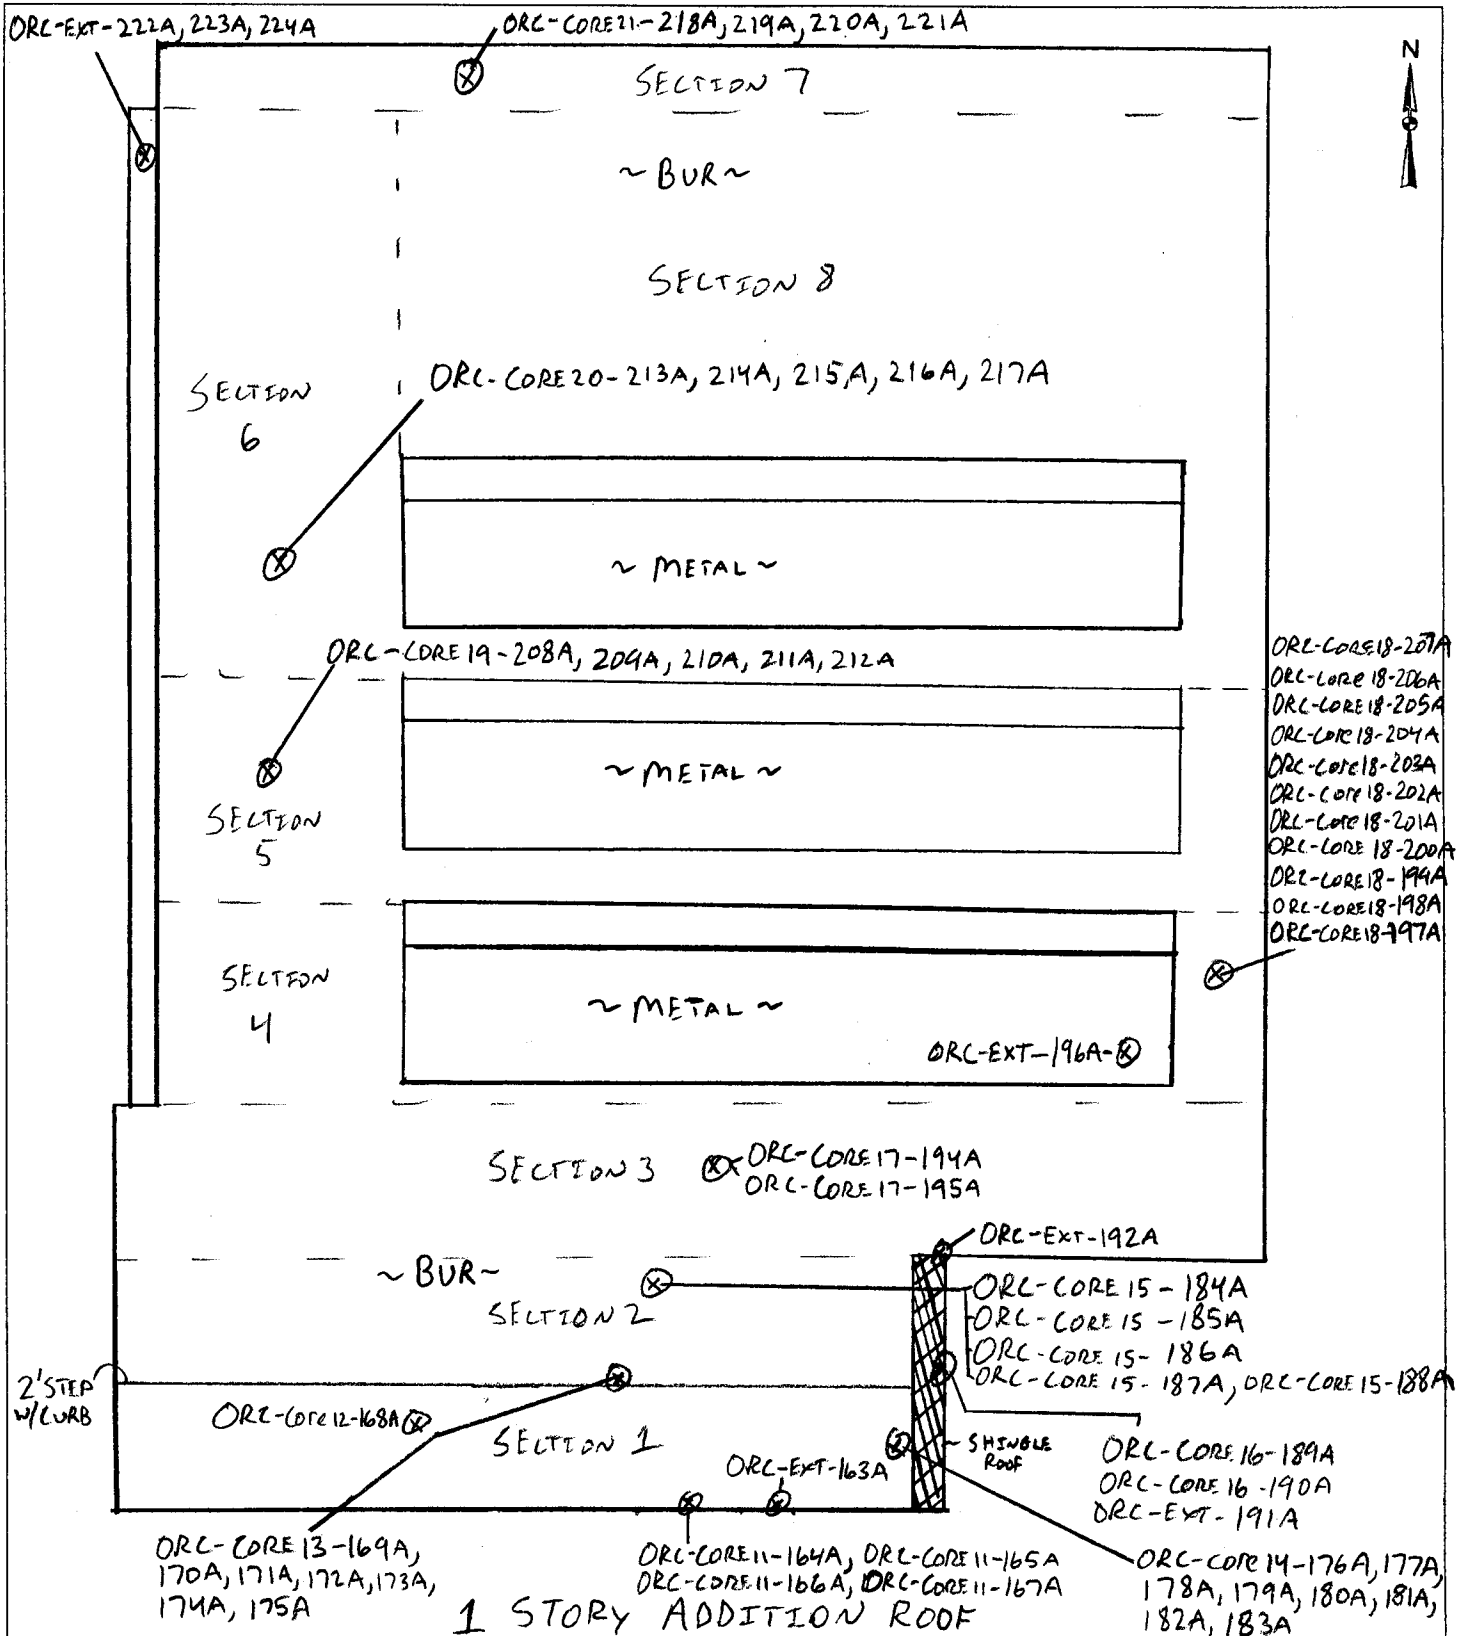 ORC-EXT-222A, 223A, 224A
ORC-CORE21-218A, 219A, 220A, 221A
N
SECTION 7
~BUR~
SECTION 8
SECTION
6
ORC-CORE20-213A, 214A, 215A, 216A, 217A
~ METAL ~
ORC-CORE19-208A, 209A, 210A, 211A, 212A
ORC-CORE18-207A
ORC-CORE 18-206A
ORC-CORE18-205A
ORC-CORE18-204A
ORC-CORE18-203A
ORC-CORE18-202A
ORC-CORE18-201A
ORC-CORE 18-200A
ORC-CORE18-199A
ORC-CORE18-198A
ORC-CORE18-197A
~METAL ~
SECTION
5
SECTION
4
~ METAL ~
ORC-EXT-196A-
SECTION 3
ORC-CORE17-194A
ORC-CORE17-195A
ORC-EXT-192A
~BUR~
SECTION 2
ORC-CORE 15-184A
ORC-CORE 15-185A
ORC-CORE 15-186A
ORC-CORE 15-187A, ORC-CORE15-188A
2' STEP
W/CURB
ORC-CORE12-168A
SECTION 1
~SHINGLE
ROOF
ORC-EXT-163A
ORC-CORE16-189A
ORC-CORE16-190A
ORC-EXT-191A
ORC-CORE13-169A,
170A, 171A, 172A, 173A,
174A, 175A
ORC-CORE11-164A, ORC-CORE11-165A
ORC-CORE11-166A, ORC-CORE11-167A
ORC-CORE14-176A, 177A,
178A, 179A, 180A, 181A,
182A, 183A
1 STORY ADDITION ROOF